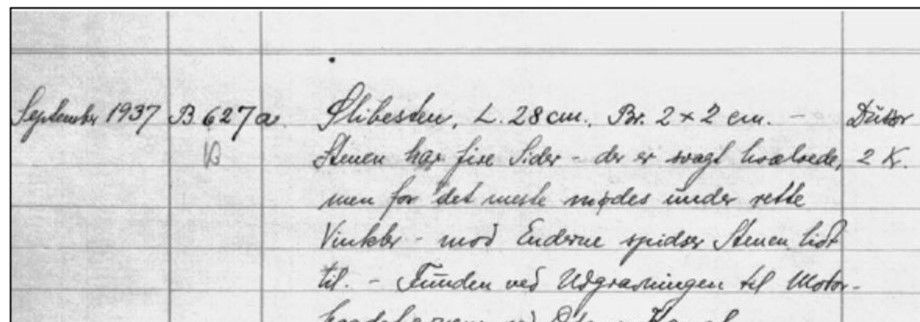 September 1937 B 627 a. Slibesten, L. 28 cm., Br. 2 × 2 cm. –
Stenen har fire Sider – der er svagt hvælvede, 2 K.
men for det meste mødes under rette
Vinkler – mod Enderne spidser Stenen lidt
til. – Funden ved Udgravningen til Motor-